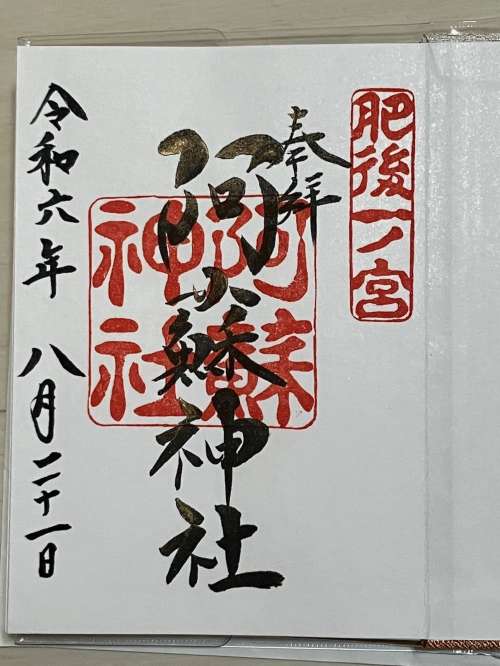 肥後一ノ宮
奉拝
阿蘇神社
阿蘇
神社
令和六年 八月二十一日